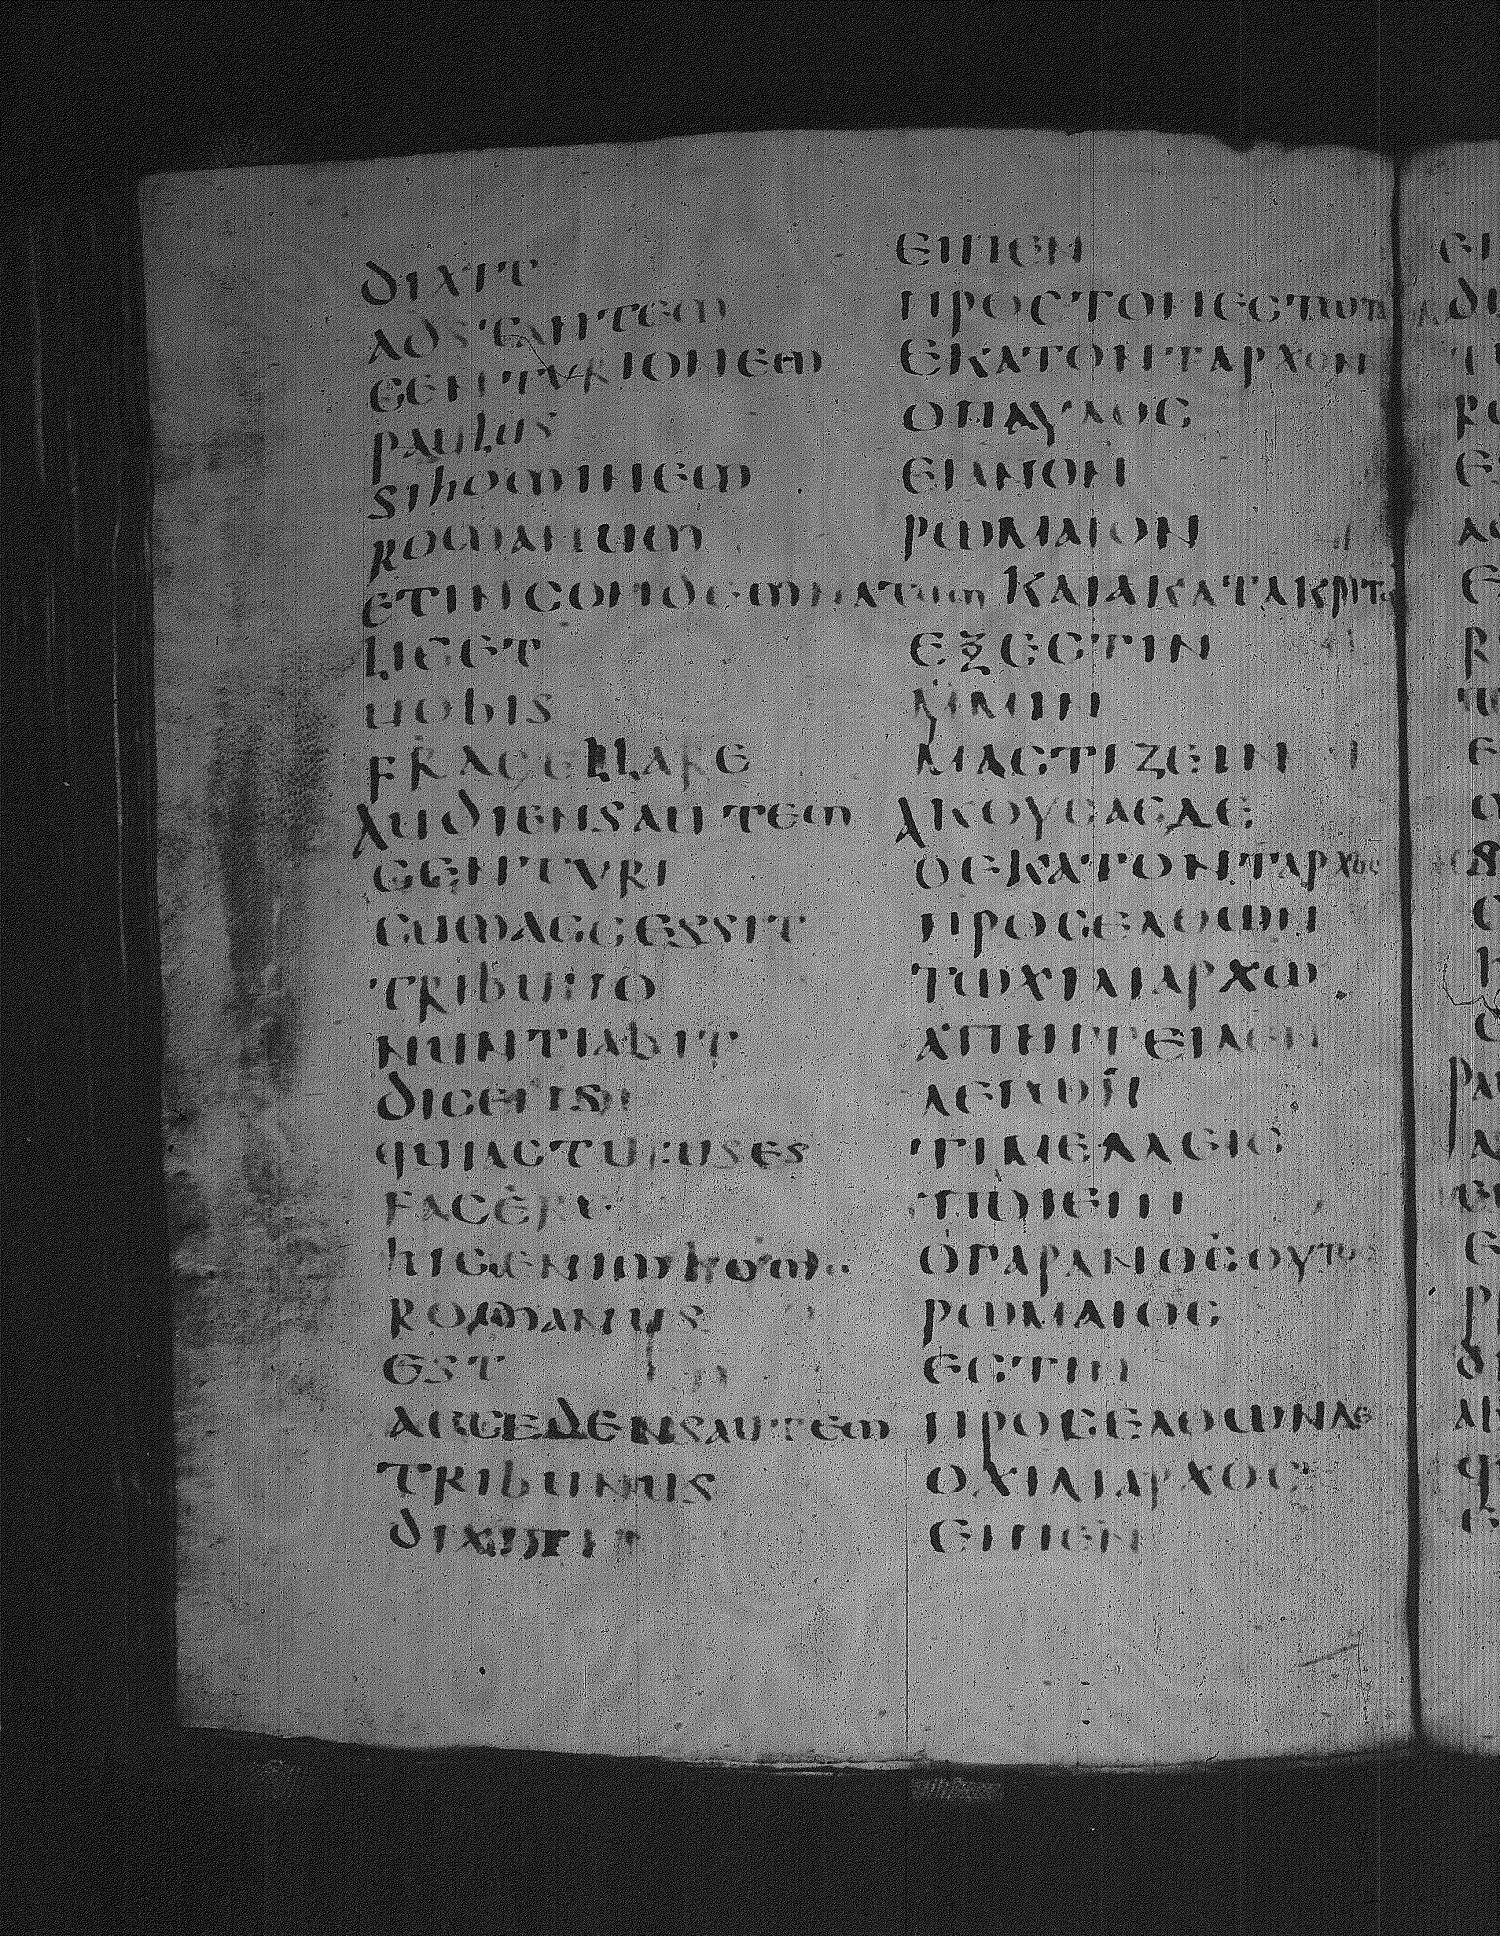 DIXIT
ADSTANTEM
CENTURIONEM
PAULUS
SIHOMINEM
ROMANUM
ETINCONDEMNATUM
LICET
UOBIS
FRAGELLARE
AUDIENSAUTEM
CENTURI
CUMACCESSIT
TRIBUNO
NUNTIABIT
DICENS
QUIACTURUSES
FACERE
HICENIMHOMO
ROMANUS
EST
ACCEDENSAUTEM
TRIBUNUS
DIXIT
ΕΙΠΕΝ
ΠΡΟϹΤΟΝΕϹΤΩΤΑ
ΕΚΑΤΟΝΤΑΡΧΟΝ
ΟΠΑΥΛΟϹ
ΕΙΑΝΟΝ
ΡΩΜΑΙΟΝ
ΚΑΙΑΚΑΤΑΚΡΙΤΟ
ΕΞΕϹΤΙΝ
ΥΜΙΝ
ΜΑϹΤΙΖΕΙΝ
ΑΚΟΥϹΑϹΔΕ
ΟΕΚΑΤΟΝΤΑΡΧΟϹ
ΠΡΟϹΕΛΘΩΝ
ΤΩΧΙΛΙΑΡΧΩ
ΑΠΗΓΓΕΙΛΕΝ
ΛΕΓΩΝ
ΤΙΜΕΛΛΕΙϹ
ΠΟΙΕΙΝ
ΟΓΑΡΑΝΟϹΟΥΤΟϹ
ΡΩΜΑΙΟϹ
ΕϹΤΙΝ
ΠΡΟϹΕΛΘΩΝΔΕ
ΟΧΙΛΙΑΡΧΟϹ
ΕΙΠΕΝ